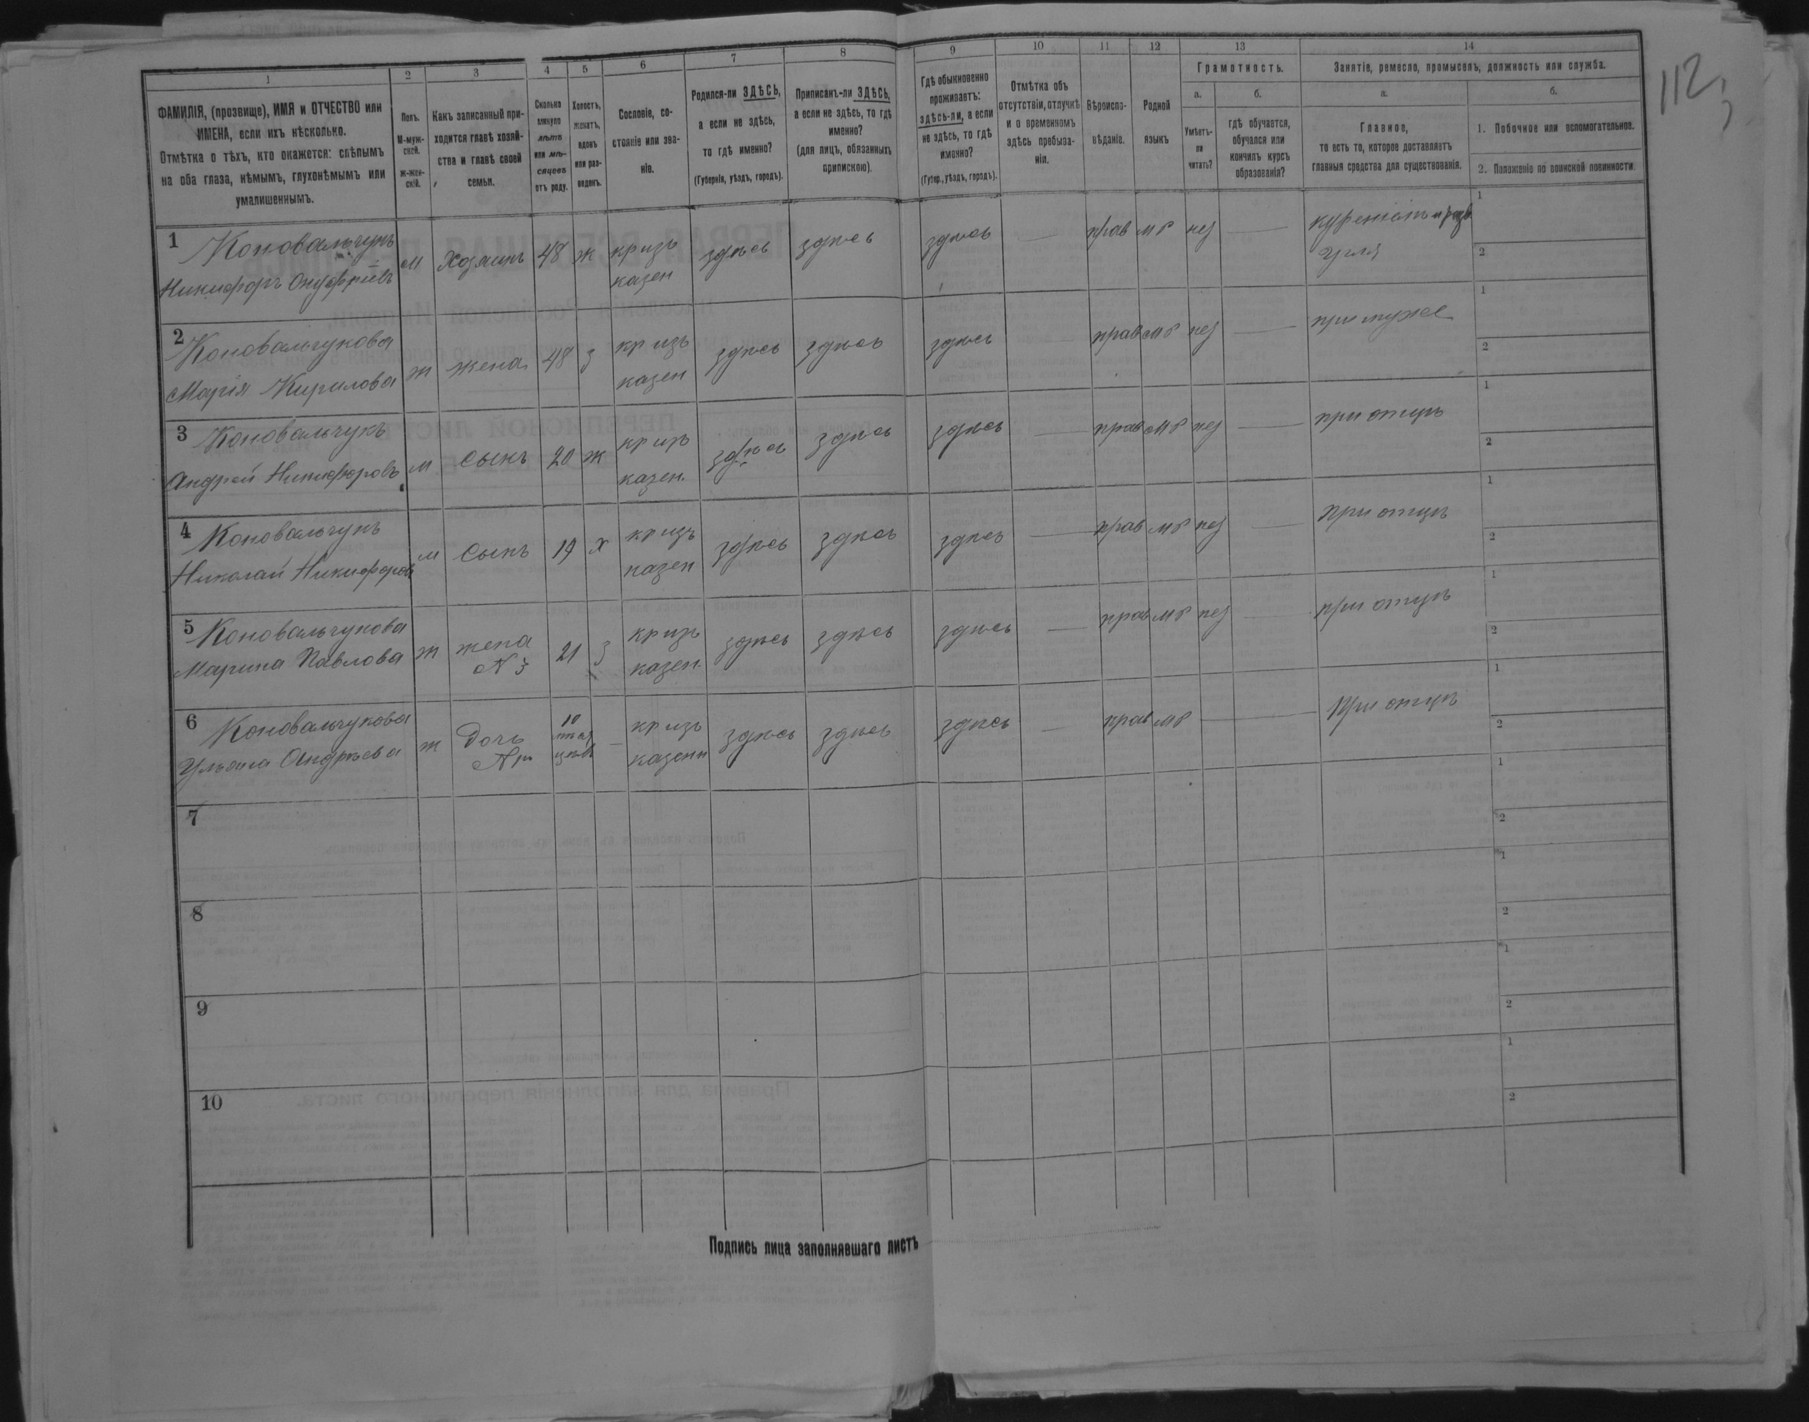 112
1 2 3 4 5 6 7 8 9 10 11 12 13 14
ФАМИЛІЯ, (прозвище), ИМЯ и ОТЧЕСТВО или
ИМЕНА, если ихъ нѣсколько.
Отмѣтка о тѣхъ, кто окажется: слѣпымъ
на оба глаза, нѣмымъ, глухонѣмымъ или
умалишеннымъ.
Полъ.
М-муж-
ской.
Ж-жен-
скій.
Какъ записанный при-
ходится главѣ хозяй-
ства и главѣ своей
семьи.
Сколько
минуло
лѣтъ
или мѣ-
сяцевъ
отъ роду.
Холостъ,
женатъ,
вдовъ
или раз-
веденъ.
Сословіе, со-
стояніе или зва-
ніе.
Родился-ли ЗДѢСЬ,
а если не здѣсь,
то гдѣ именно?
(Губернія, уѣздъ, городъ).
Приписанъ-ли ЗДѢСЬ,
а если не здѣсь, то гдѣ
именно?
(для лицъ, обязанныхъ
припискою).
Гдѣ обыкновенно
проживаетъ:
здѣсь-ли, а если
не здѣсь, то гдѣ
именно?
(Губер., уѣздъ, городъ).
Отмѣтка объ
отсутствіи, отлучкѣ
и о временномъ
здѣсь пребыва-
ніи.
Вѣроиспо-
вѣданіе.
Родной
языкъ
Грамотность.
а.
Умѣетъ-
ли
читать?
б.
гдѣ обучается,
обучался или
кончилъ курсъ
образованія?
Занятіе, ремесло, промыселъ, должность или служба.
а.
Главное,
то есть то, которое доставляетъ
главныя средства для существованія.
б.
1. Побочное или вспомогательное.
2. Положеніе по воинской повинности
1 Коновальчукъ
Никифоръ Онуфріевъ
м хозяинъ 48 ж кр изъ казен здѣсь здѣсь здѣсь — прав мр нез —
угля
1
2
2 Коновальчукова
Марія Кирилова
ж жена 48 з кр изъ казен здѣсь здѣсь здѣсь — прав мр нез — при мужѣ
1
2
3 Коновальчукъ
Андрей Никифоровъ
м сынъ 20 ж кр изъ казен. здѣсь здѣсь здѣсь — прав мр нез — при отцѣ
1
2
4 Коновальчукъ
Николай Никифоровъ
м сынъ х кр изъ казен здѣсь здѣсь здѣсь — прав мр нез — при отцѣ
1
2
5 Коновальчукова
Марина Павлова
ж жена N 3 21 з кр изъ казен. здѣсь здѣсь здѣсь — прав мр нез — при отцѣ
1
2
6 Коновальчукова
Андрѣева
ж дочь 10 — кр изъ казенъ здѣсь здѣсь здѣсь — прав мр — при отцѣ
1
2
7
1
2
8
1
2
9
1
2
10
1
2
Подпись лица заполнявшаго листъ